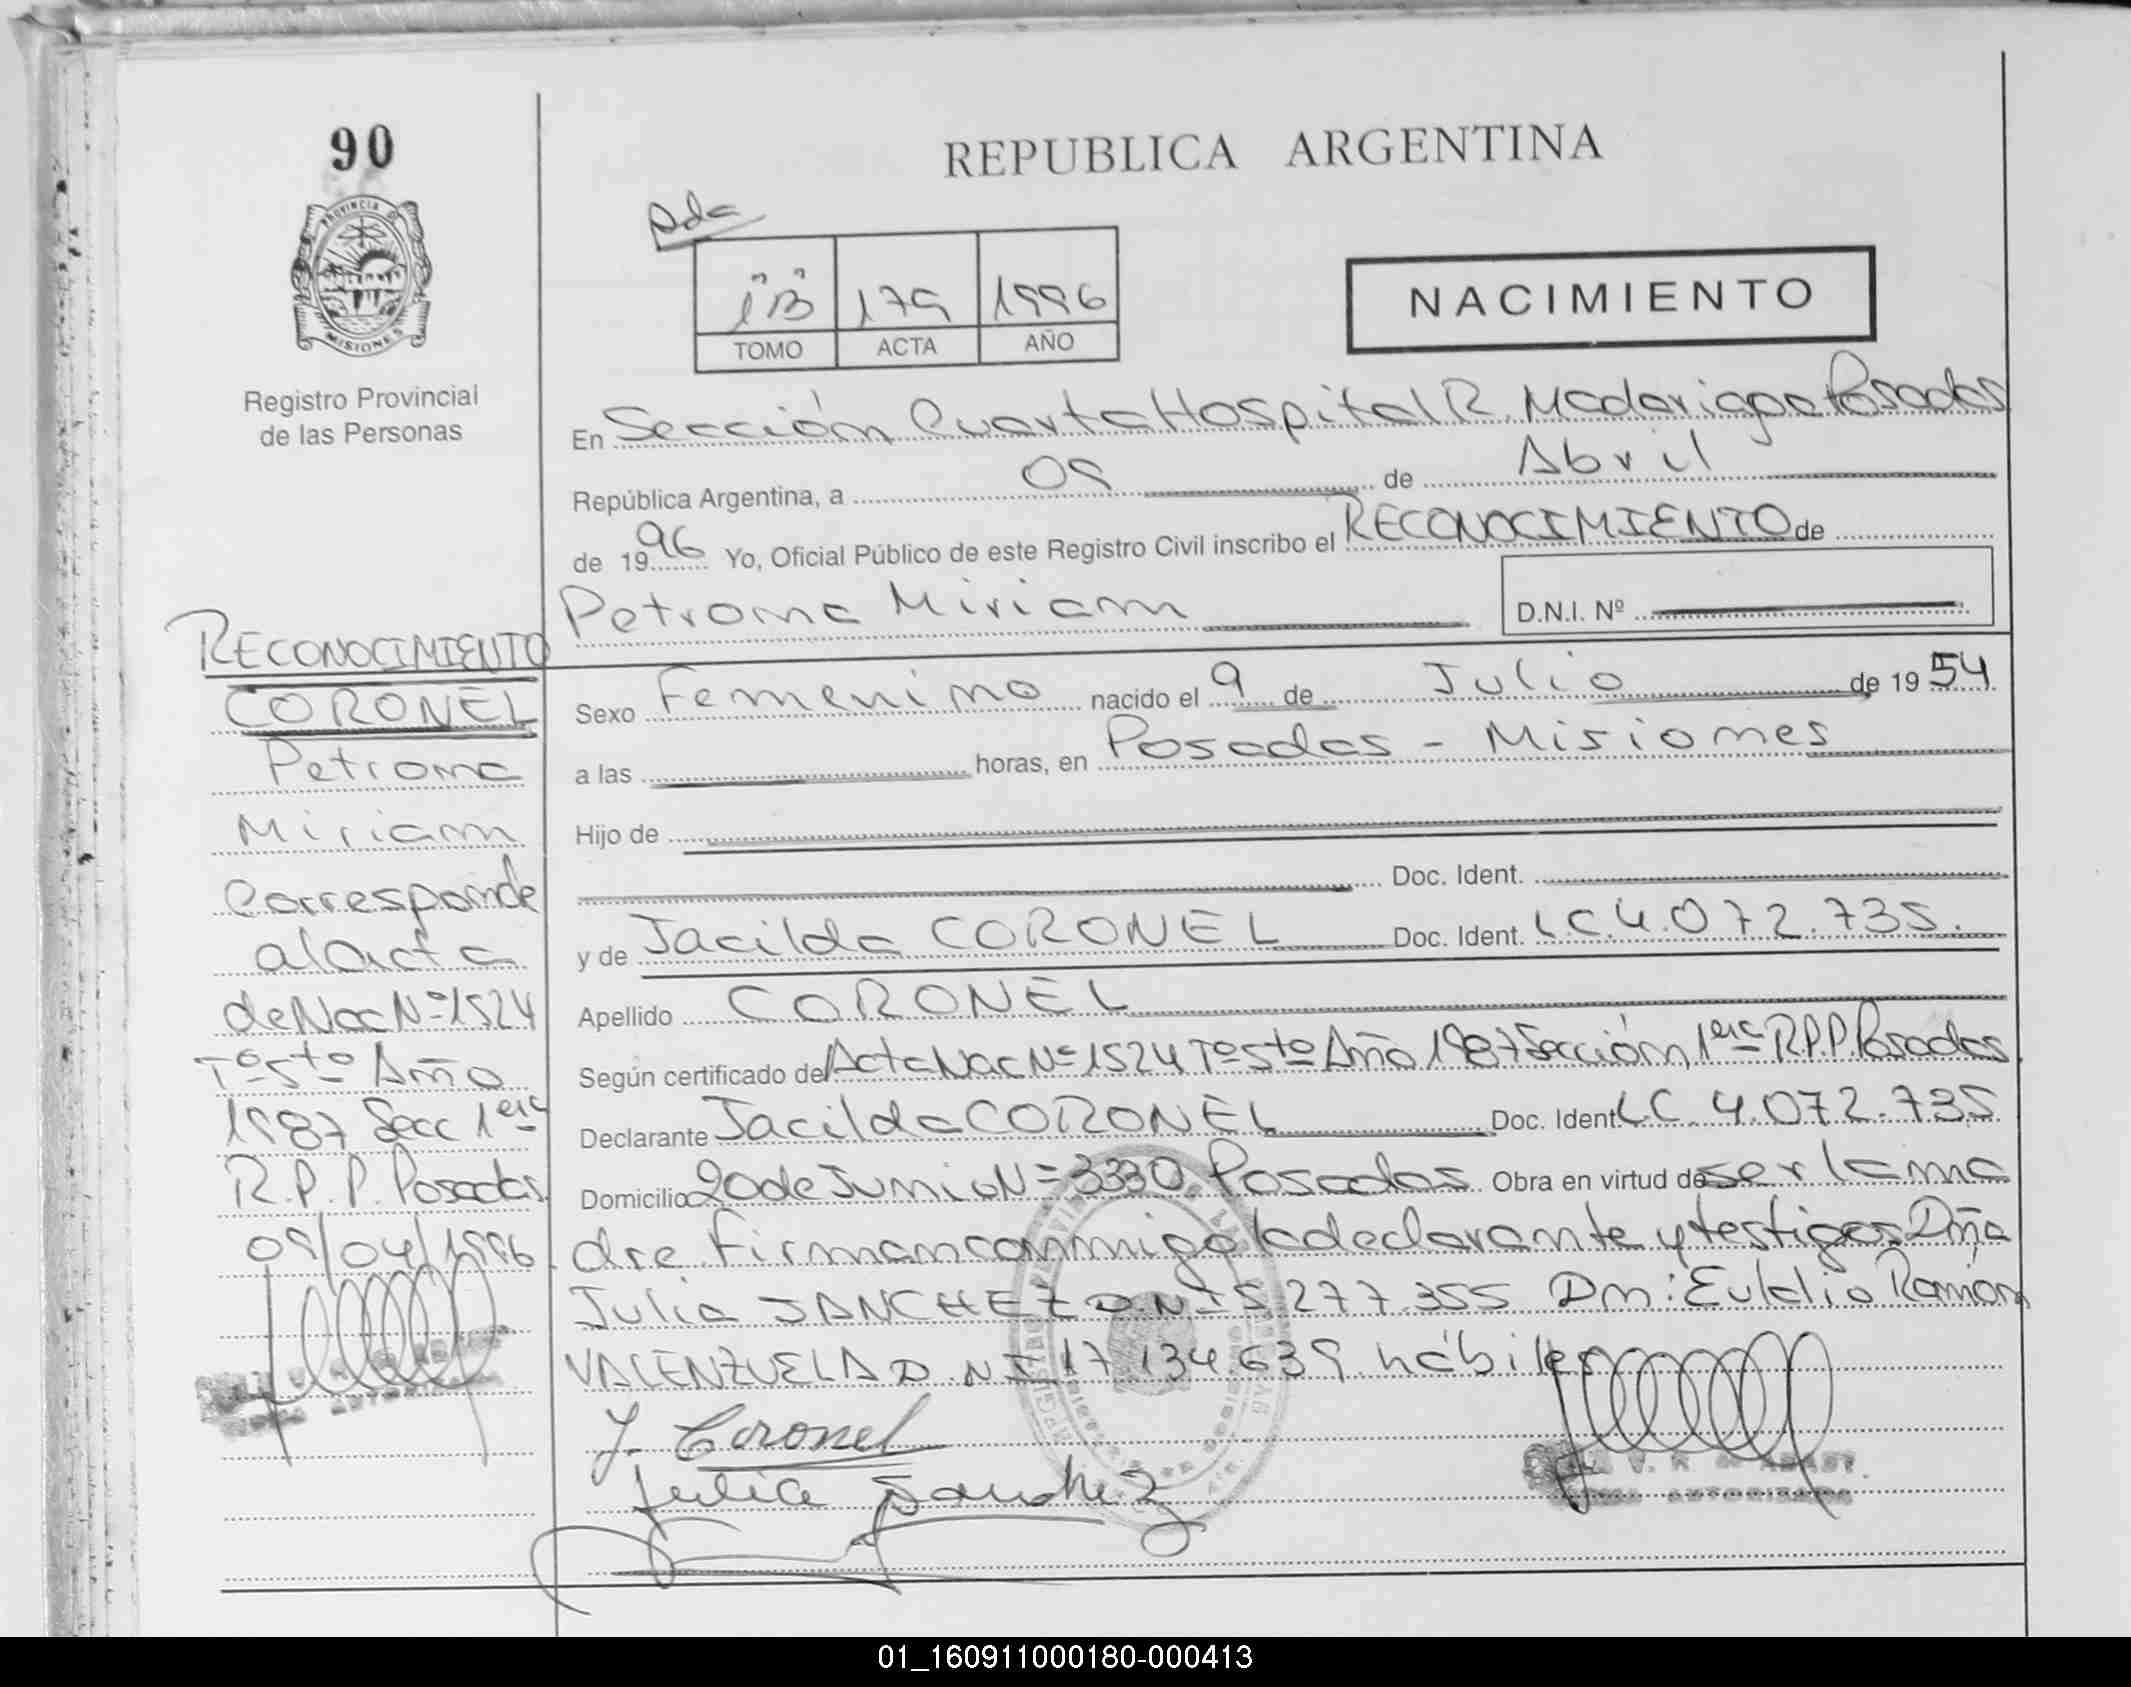 90
REPUBLICA ARGENTINA
PROVINCIA DE
MISIONES
Registro Provincial
de las Personas
Pda
1"B" 179 1996
TOMO ACTA AÑO
NACIMIENTO
En Sección Cuarta Hospital R. Madariaga Posadas
República Argentina, a 09 de Abril
de 1996 Yo, Oficial Público de este Registro Civil inscribo el RECONOCIMIENTO de
Petrona Miriam D.N.I. Nº
Sexo Femenino nacido el 9 de Julio de 1954
a las horas, en Posadas - Misiones
Hijo de
Doc. Ident.
y de Jacilda CORONEL Doc. Ident. LC.4.072.735.
Apellido CORONEL
Según certificado de Acta Nac Nº 1524 Tº 5to Año 1987 Sección 1era R.P.P. Posadas
Declarante Jacilda CORONEL Doc. Ident. LC. 4.072.735
Domicilio 20 de Junio Nº 3330 Posadas Obra en virtud de ser la ma
dre. Firman conmigo la declarante y testigos Dña
Julia SANCHEZ D.N.I 5.277.355 Dn: Eulalio Ramon
VALENZUELA D.N.I 17.134.639. hábiles
J. Coronel
Julia Sanchez
RECONOCIMIENTO
CORONEL
Petrona
Miriam
Corresponde
al Acta
de Nac Nº 1524
Tº 5to Año
1987 Secc 1era
R.P.P. Posadas
09/04/1996
01_160911000180-000413